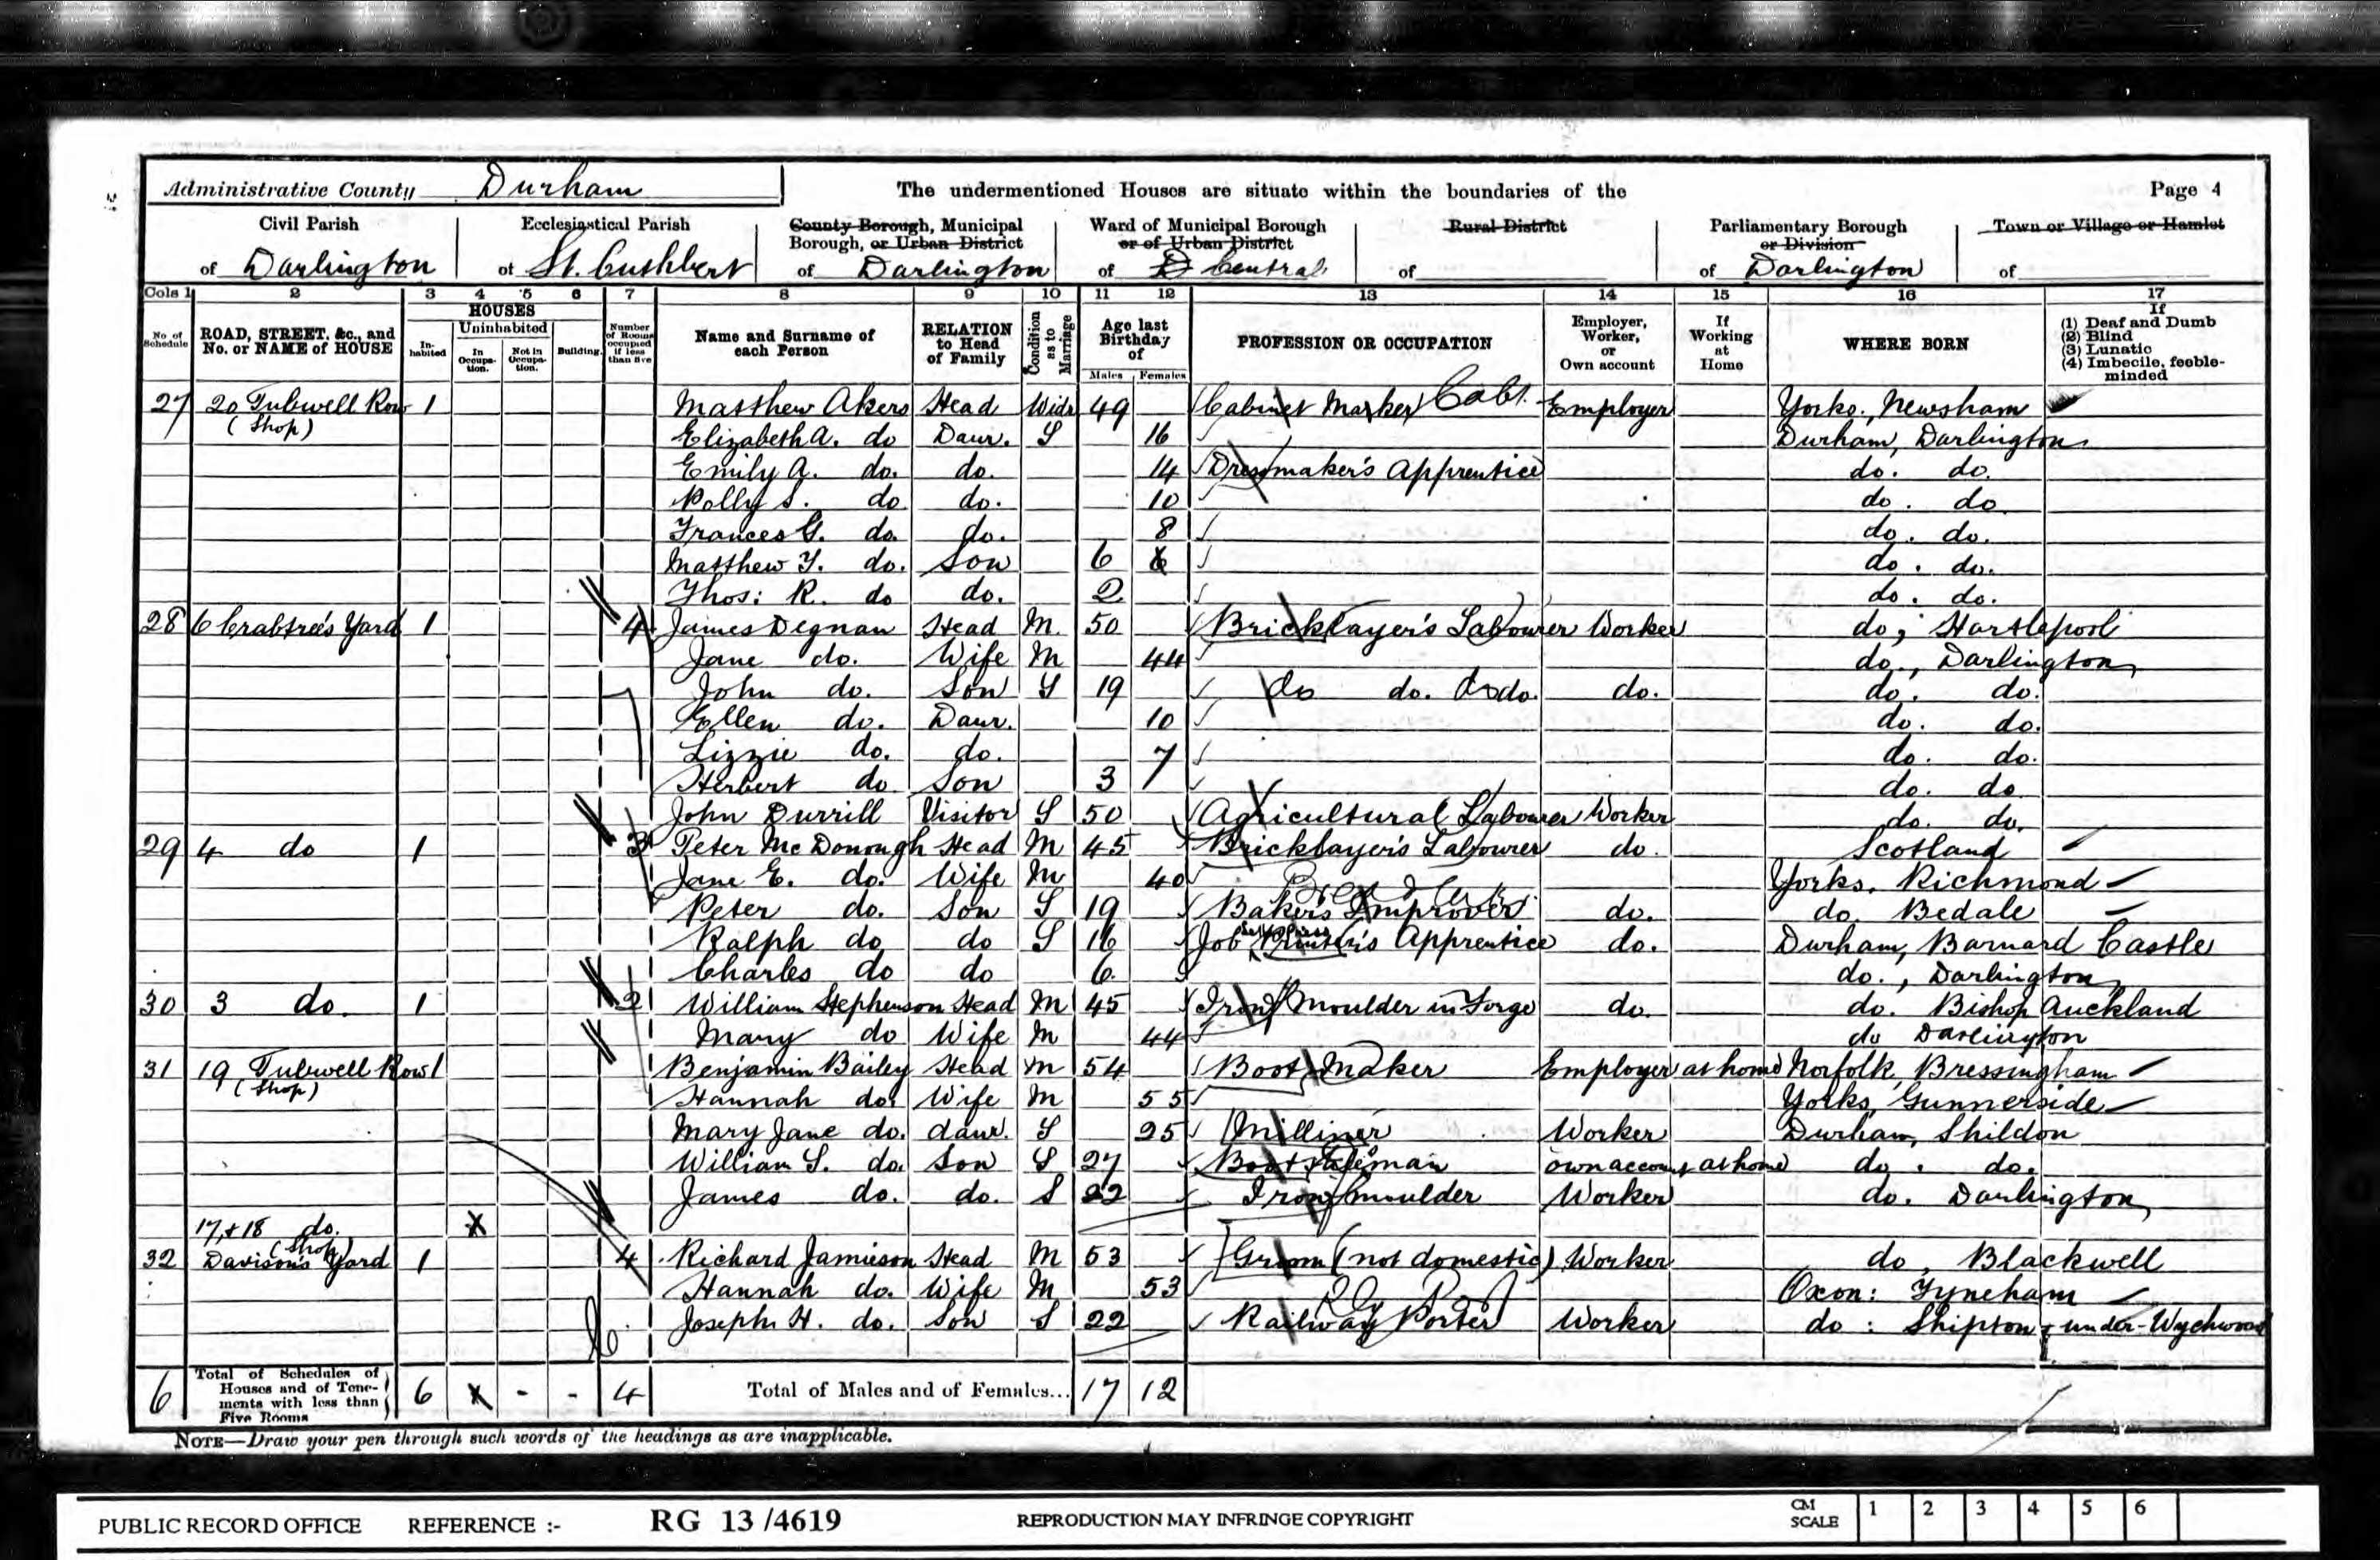 Administrative County Durham The undermentioned Houses are situate within the boundaries of the Page 4
Civil Parish Ecclesiastical Parish County Borough, Municipal Ward of Municipal Borough Rural District Parliamentary Borough Town or Village or Hamlet
Borough, or Urban District or of Urban District or Division
of Darlington of St. Cuthbert of Darlington of Central of of Darlington of
Cols 1 2 3 4 5 6 7 8 9 10 11 12 13 14 15 16 17
No of Schedule ROAD, STREET, &c., and No. or NAME of HOUSE HOUSES In-habited Uninhabited In Occupa-tion. Not in Occupa-tion. Building. Number of Rooms occupied if less than five Name and Surname of each Person RELATION to Head of Family Condition as to Marriage Age last Birthday of Males Females PROFESSION OR OCCUPATION Employer, Worker, or Own account If Working at Home WHERE BORN If (1) Deaf and Dumb (2) Blind (3) Lunatic (4) Imbecile, feeble-minded
27 20 Tubwell Row 1 Matthew Akers Head Widr 49 Cabinet Maker Cabt. Employer Yorks., Newsham
(Shop) Elizabeth A. do Daur. S 16 Durham, Darlington
Emily A. do. do. 14 Dressmaker's Apprentice do. do.
Polly S. do do. 10 do. do.
Frances G. do. do. 8 do. do.
Matthew Y. do. Son 6 6 do. do.
Thos: R. do do. 2 do. do.
28 6 Crabtree's Yard 1 4 James Degnan Head M. 50 Bricklayer's Labourer Worker do, Hartlepool
Jane do. Wife M 44 do., Darlington
John do. Son S 19 do do. do do. do. do. do.
Ellen do. Daur. 10 do. do.
Lizzie do. do. 7 do. do.
Herbert do Son 3 do. do
John Durrill Visitor S 50 Agricultural Labourer Worker do. do.
29 4 do 1 3 Peter McDonough Head M 45 Bricklayer's Labourer do. Scotland
Jane E. do. Wife M 40 Yorks, Richmond
Peter do. Son S 19 Baker's Improver do. do. Bedale
Ralph do do S 16 Job Printer's Apprentice do. Durham, Barnard Castle
Charles do do 6 do., Darlington
30 3 do. 1 2 William Stephenson Head M 45 Iron Moulder in Forge do. do. Bishop Auckland
Mary do Wife M 44 do Darlington
31 19 Tubwell Row 1 Benjamin Bailey Head M 54 Boot Maker Employer at home Norfolk, Bressingham
(Shop) Hannah do. Wife M 55 Yorks, Gunnerside
Mary Jane do. daur. S 25 Milliner Worker Durham, Shildon
William S. do. Son S 27 Boot Salesman own account at home do. do.
James do. do. S 22 Iron moulder Worker do. Darlington
17, + 18 do. X
(Shop)
32 Davison's Yard 1 4 Richard Jamieson Head M 53 Groom (not domestic) Worker do, Blackwell
Hannah do. Wife M 53 Oxon: Fyneham
Joseph H. do. Son S 22 Railway Porter Worker do: Shipton-under-Wychwood
6 Total of Schedules of Houses and of Tene-ments with less than Five Rooms 6 X - - 4 Total of Males and of Females... 17 12
NOTE—Draw your pen through such words of the headings as are inapplicable.
PUBLIC RECORD OFFICE REFERENCE :- RG 13/4619 REPRODUCTION MAY INFRINGE COPYRIGHT CM SCALE 1 2 3 4 5 6